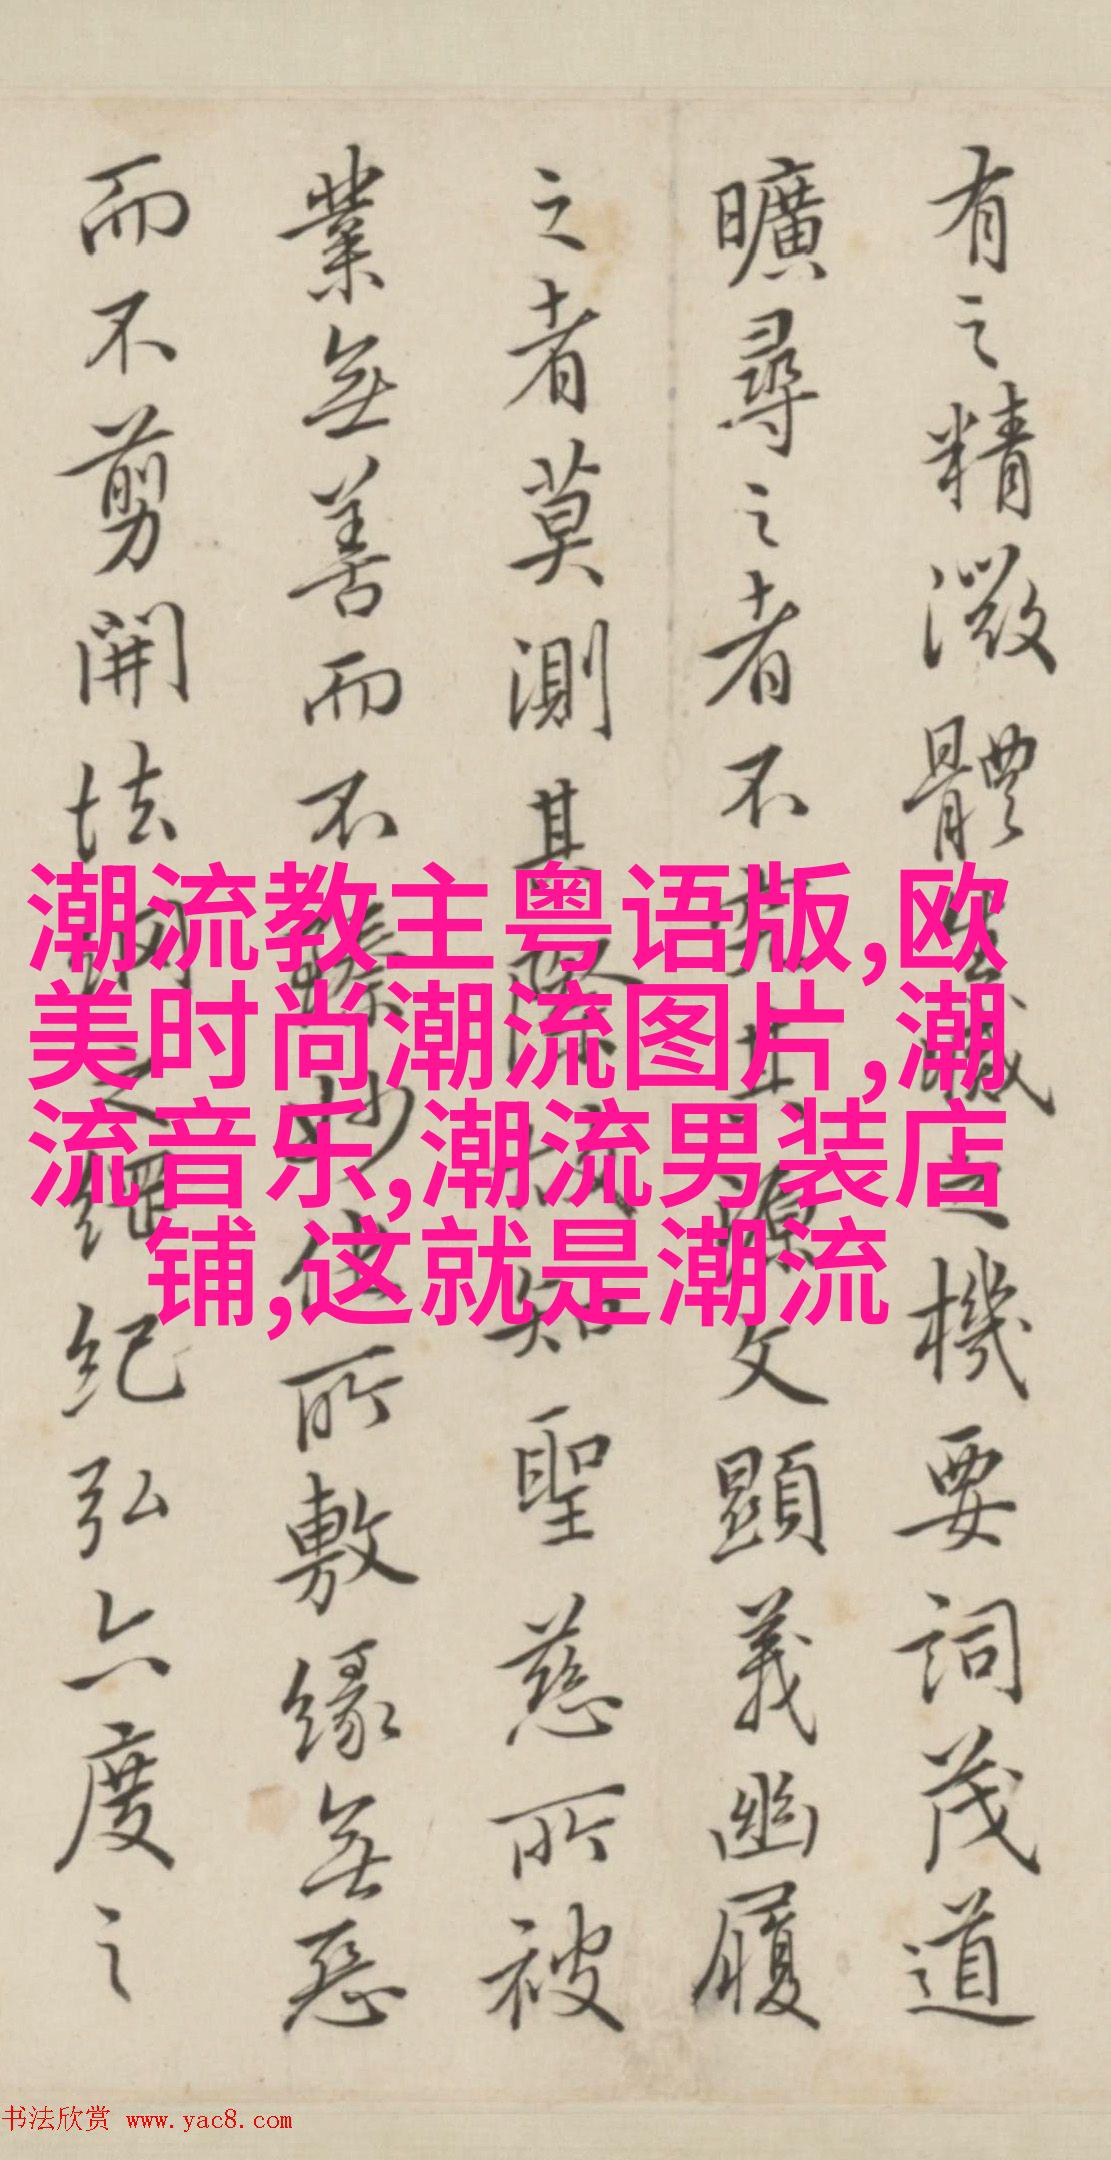 有之精微體生滅之機要詞茂道
曠尋之者不究其源文顯義幽履
之者莫測其際故知聖慈所被
業無善而不臻妙化所敷緣無惡
而不剪開法網之綱紀弘六度之
潮流教主粤语版,欧
美时尚潮流图片,潮
流音乐,潮流男装店
铺,这就是潮流
书法欣赏 www.yac8.com